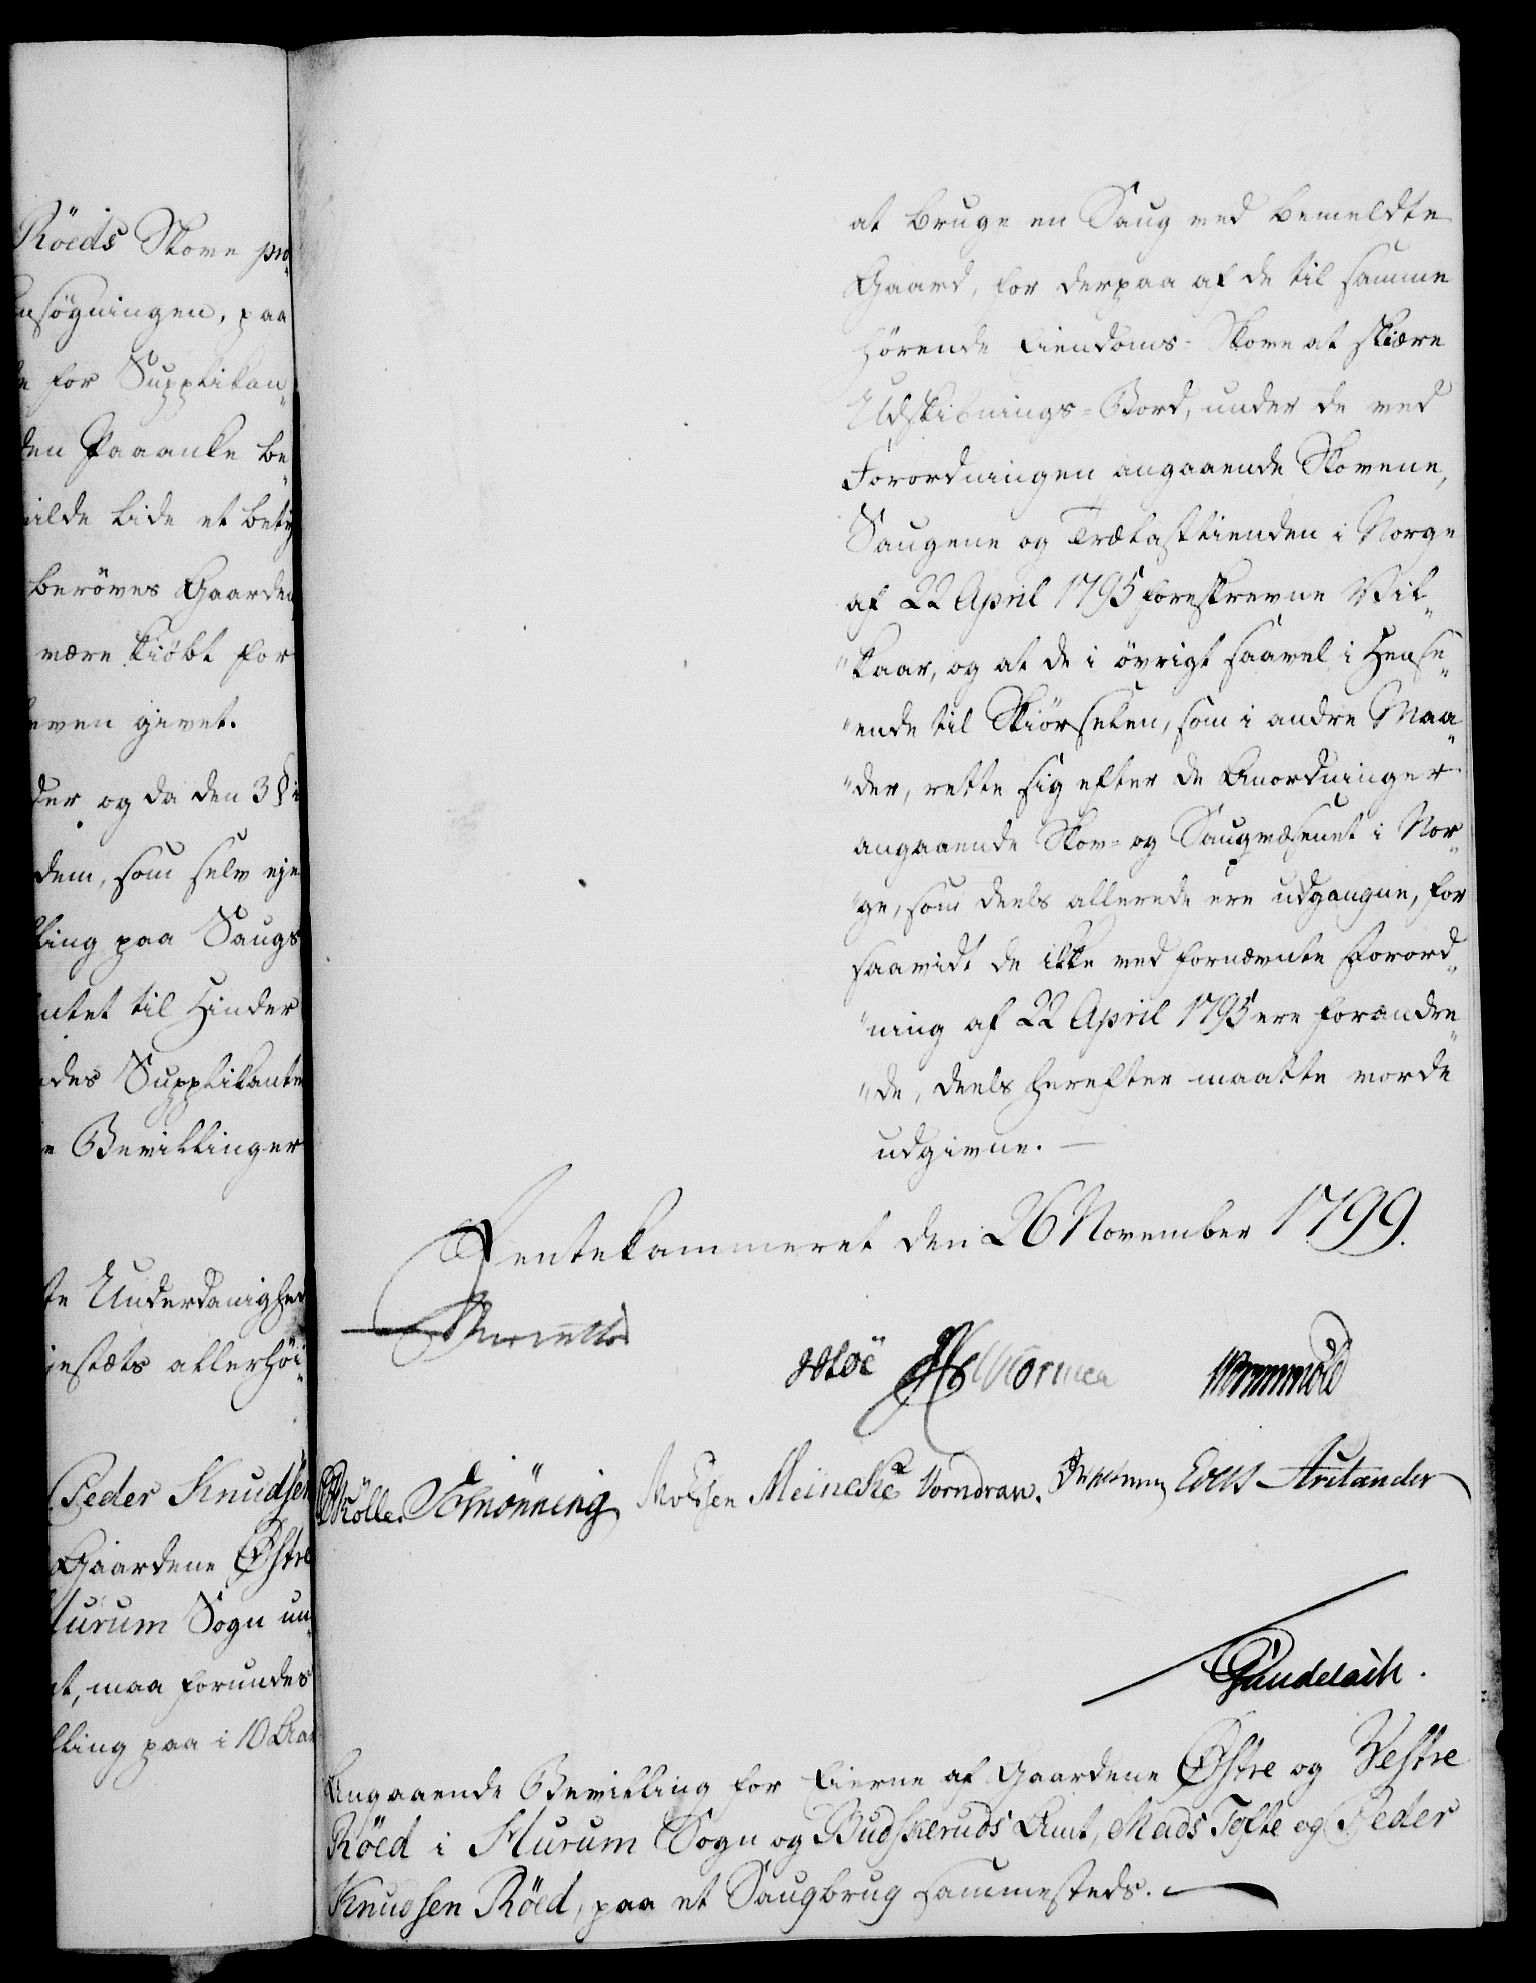 Röeds Skove pro„
nsøgningen, paa
for Supplikan„
den Paaanke be„
ilde lide et bety
berøves Gaarden
være kiöbt for
even givet.
der og da den 3 § i
dem, som selv eje
ling paa Saugs
intet til Hinder
des Supplikante
e Bevillinger
te Underdanighed
jestæts allerhöi„
Peder Knudsen
Gaardene Østre
Hurum Sogn un„
t, maa forundes
lling paa i 10 Aar
at bruge en Saug ved bemeldte
Gaard, for derpaa af de til samme
hørende Eiendoms=Skove at skiære
Udskibnings=Bord, under de ved
Forordningen angaaende Skovene,
Saugene og Trælasttienden i Norge
af 22 April 1795 foreskrevne Vil„
„kaar, og at de i övrigt saavel i Hense„
„ende til Skiörselen, som i andre Maa„
„der, rette sig efter de Anordninger
angaaende Skov= og Saugvæsenet i Nor„
„ge, som deels allerede ere udgangne, for
saavidt de ikke ved fornævnte Forord„
„ning af 22 April 1795 ere forandre„
„de, deels herefter maatte vorde
udgivne. —
Rentekammeret den 26 November 1799.
Wormskiold
Mölle. Schiönning Meincke Vorndran. Arctander
Gundelach.
Angaaende Bevilling for Eierne af Gaardene Østre og Vestre
Röed i Hurum Sogn og Budskeruds Amt, Mads Tofte og Peder
Knudsen Röed, paa et Saugbrug sammesteds. —